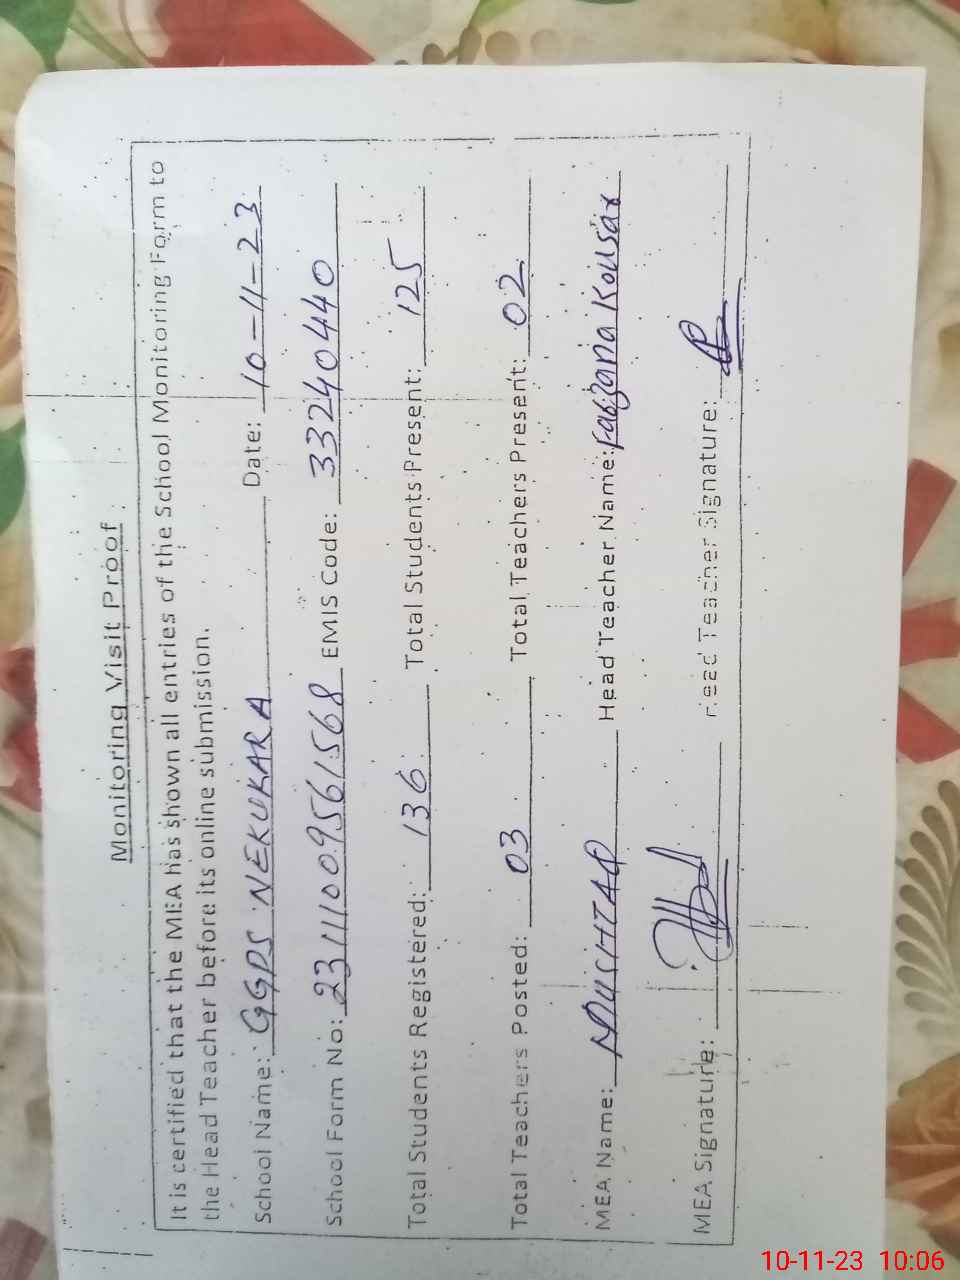 Monitoring Visit Proof
It is certified that the MEA has shown all entries of the School Monitoring Form to
the Head Teacher before its online submission.
School Name: GGPS NEKUKARA Date: 10-11-23
School Form No: 23111009561568 EMIS Code: 33240440
Total Students Registered: 136 Total Students Present: 125
Total Teachers Posted: 03 Total Teachers Present: 02
MEA Name: MUSHTAQ Head Teacher Name: Farzana Kousar
MEA Signature: Head Teacher Signature:
10-11-23 10:06